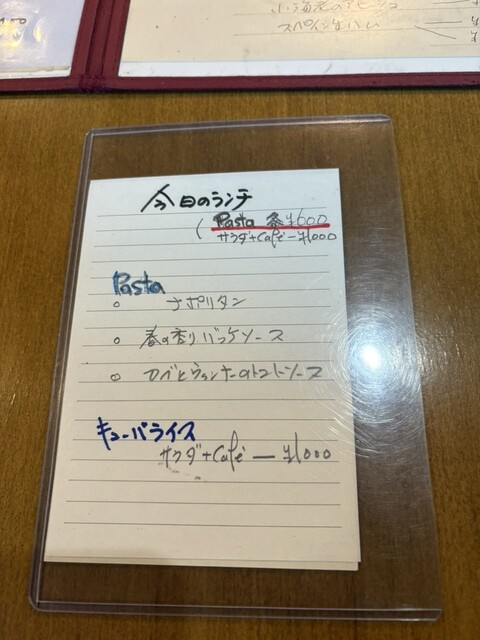 小海老のアヒージョ
スペイン生ハム
今日のランチ
(Pasta 各¥600
サラダ+Café—¥1000
Pasta
○ ナポリタン
○ 春の香りバッケソース
○ カベとウィンナーのトマトソース
キューバライス
サラダ+Café—¥1000